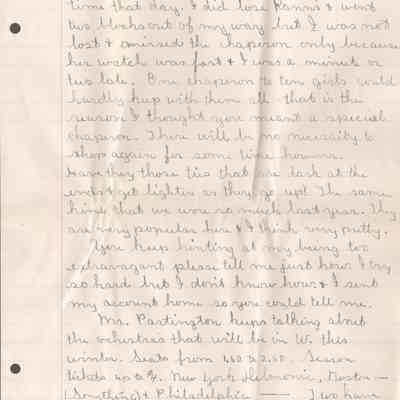 time that day. I did lose Kanns & went
two blocks out of my way but I was not
lost & missed the chaperon only because
her watch was fast & I was a minute or
two late. One chaperon to ten girls could
hardly keep with them all - that is the
reason I thought you meant a special
chaperon. There will be no necessity to
shop again for some time however.
Have they those ties that are dark at the
ends & get lighter as they go up? The same
kind that we wore so much last year. They
are very popular here & I think very pretty.
You keep hinting at my being too
extravagant please tell me just how. I try
so hard but I don't know how & I sent
my account home so you could tell me.
Mrs. Partington keeps talking about
the orchestras that will be in W. this
winter. Seats from 1.50 to 2.50. Season
tickets New York Boston —
(Something) & Philadelphia — I wo have